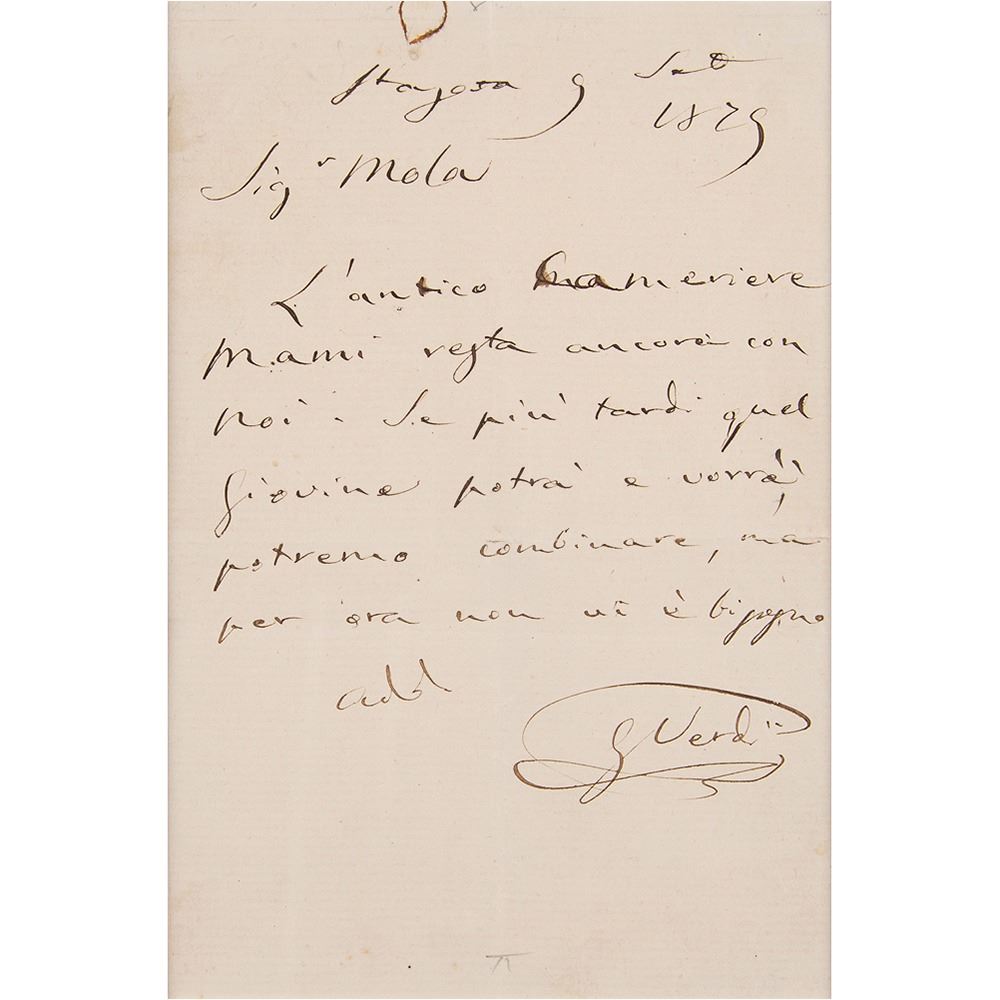 St Agata 9 Set
1879
Sigr Mola
L'antico Cameriere
Mami resta ancora con
noi. Se più tardi quel
giovine potrà e vorrà,
potremo combinare, ma
per ora non vi è bisogno
add
G Verdi